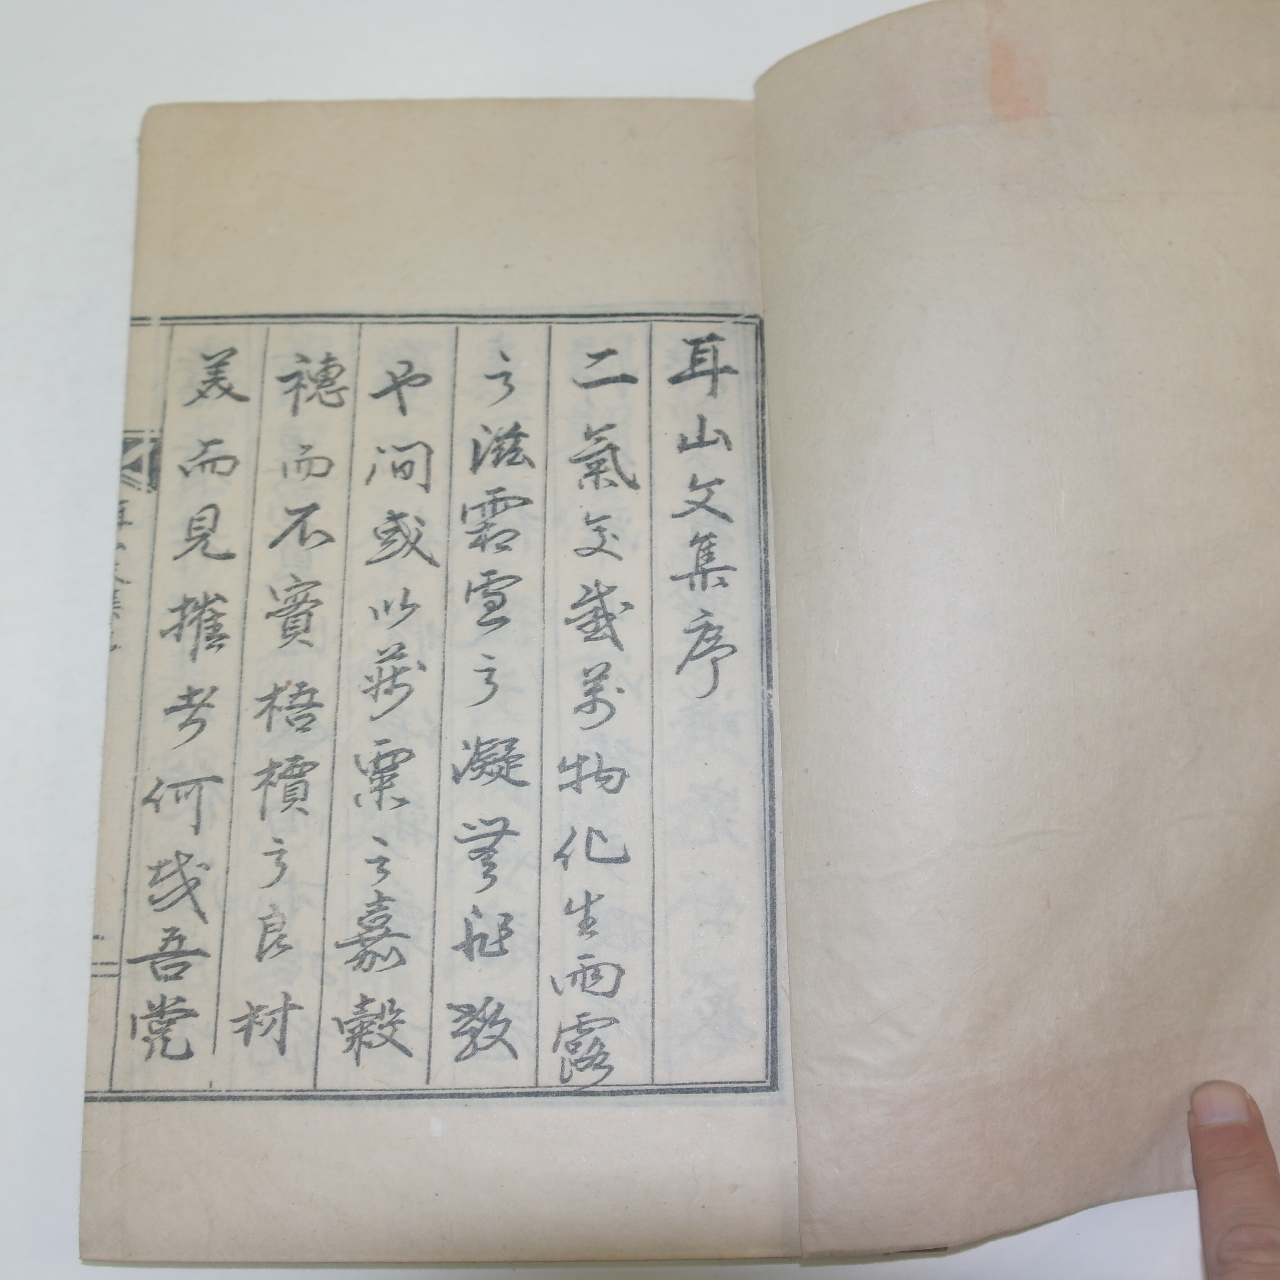 耳山文集序
二氣交感萬物化生雨露
之滋霜雪之凝無非教
也間或以粟之嘉穀
穗而不實梧檟之良材
美而見摧者何哉吾党